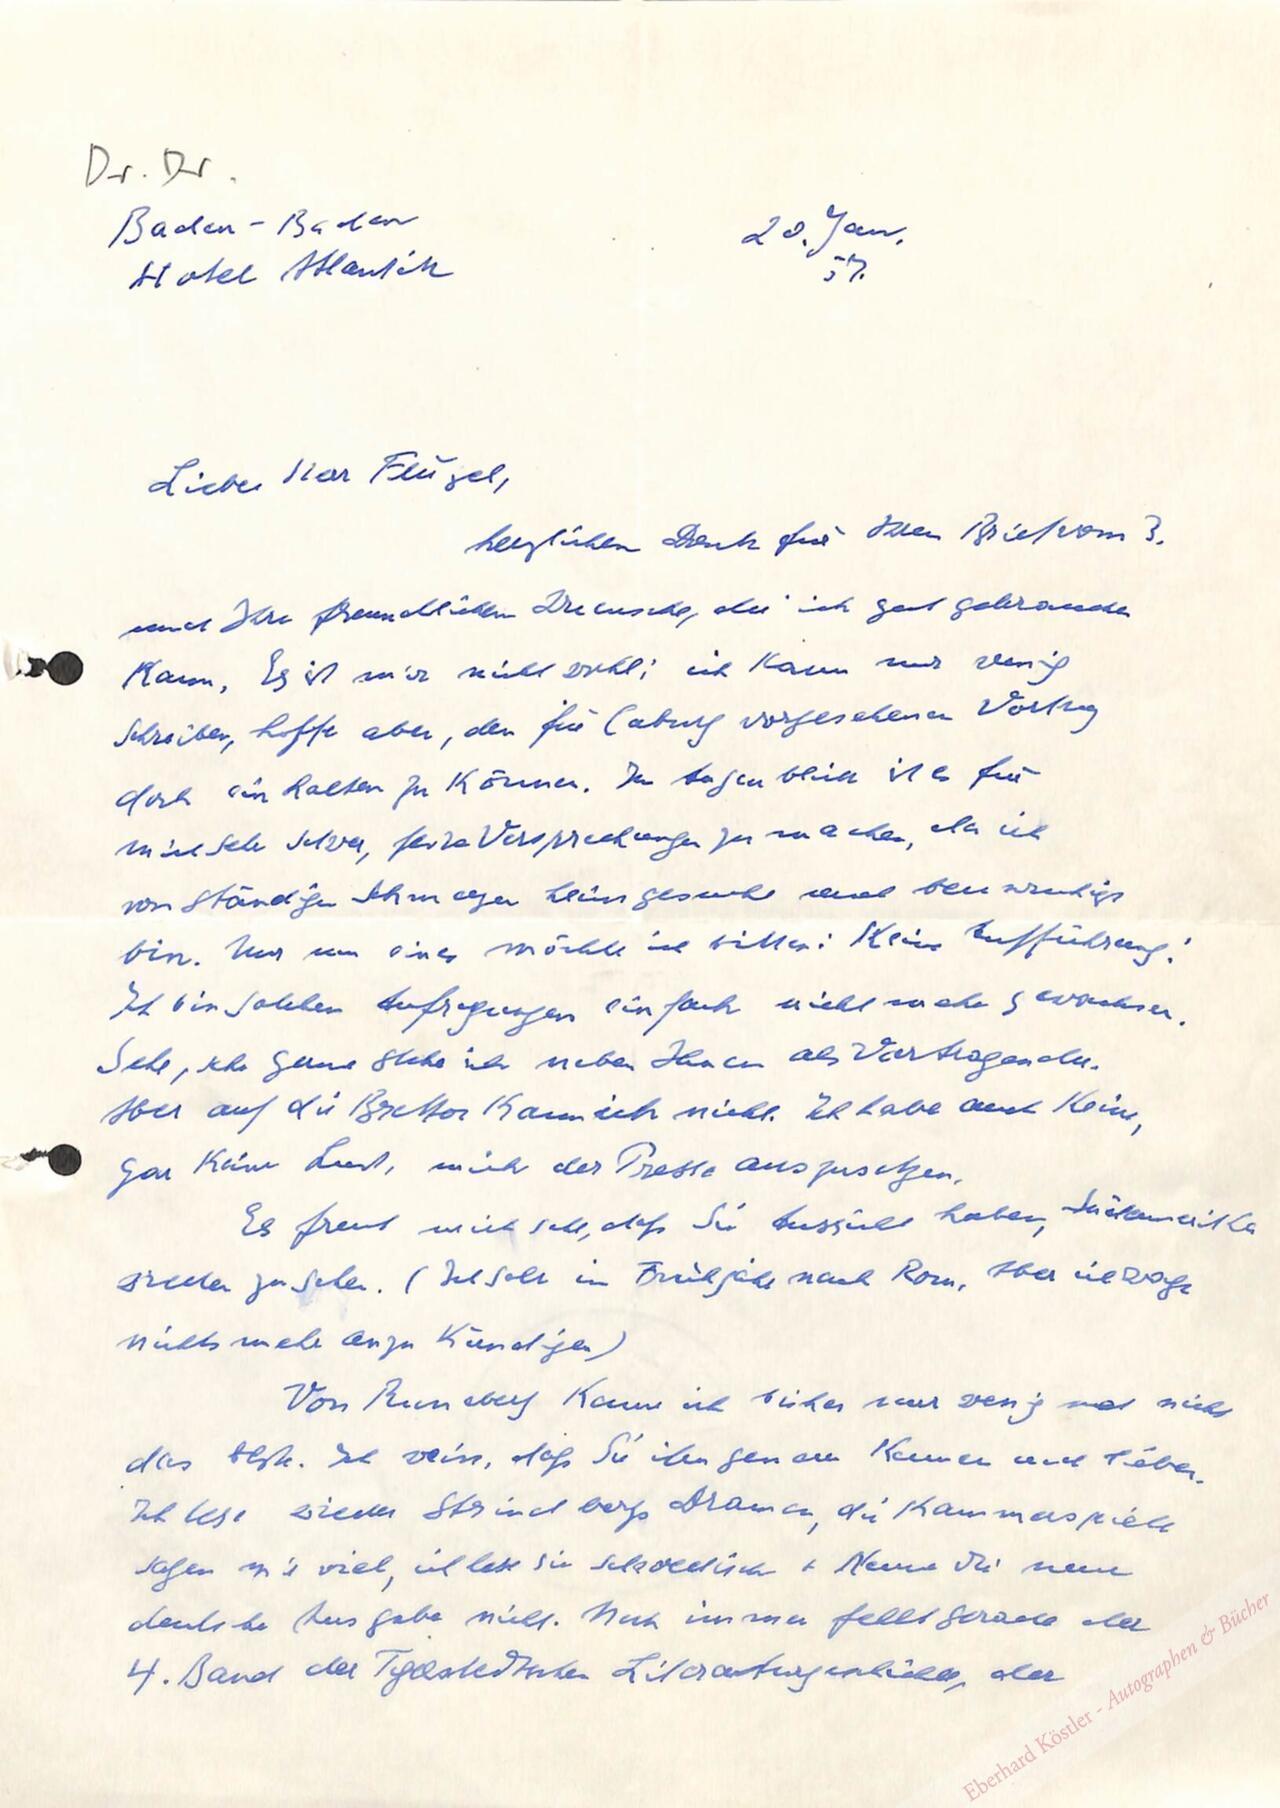 Dr. Dr.
Baden-Baden
Hotel Atlantik
20. Jan.
57.
Lieber Herr Flügel,
herzlichen Dank für Ihren Brief vom 3.
und Ihre freundlichen Wünsche, die ich gut gebrauchen
kann. Es ist mir nicht wohl; ich kann nur wenig
schreiben, hoffe aber, den für Coburg vorgesehenen Vortrag
doch einhalten zu können. Im Augenblick ist es für
mich sehr schwer, feste Versprechungen zu machen, da ich
von ständigen heimgesucht und beunruhigt
bin. Nur um eines möchte ich bitten: Keine Aufführung!
Ich bin solchen Aufregungen einfach nicht mehr gewachsen.
Sehr, sehr gerne stehe ich neben Ihnen als Vortragender.
Aber auf die Bretter kann ich nicht. Ich habe auch keine,
gar keine Lust, mich der Presse auszusetzen.
Es freut mich sehr, daß Sie Aussicht haben, Südamerika
wieder zu sehen. (Ich soll im Frühjahr nach Rom. Aber ich wage
nichts mehr anzukündigen)
Von Runeberg kenne ich bisher nur wenig und nicht
das. Ich weiss, daß Sie ihn genau kennen und lieben.
Ich lese wieder Strindbergs Dramen, die Kammerspiele
sagen mir viel, ich lese sie schwedisch + kenne die neue
deutsche Ausgabe nicht. Noch immer fehlt gerade der
4. Band der Literaturgeschichte, der
Eberhard Köstler - Autographen & Bücher